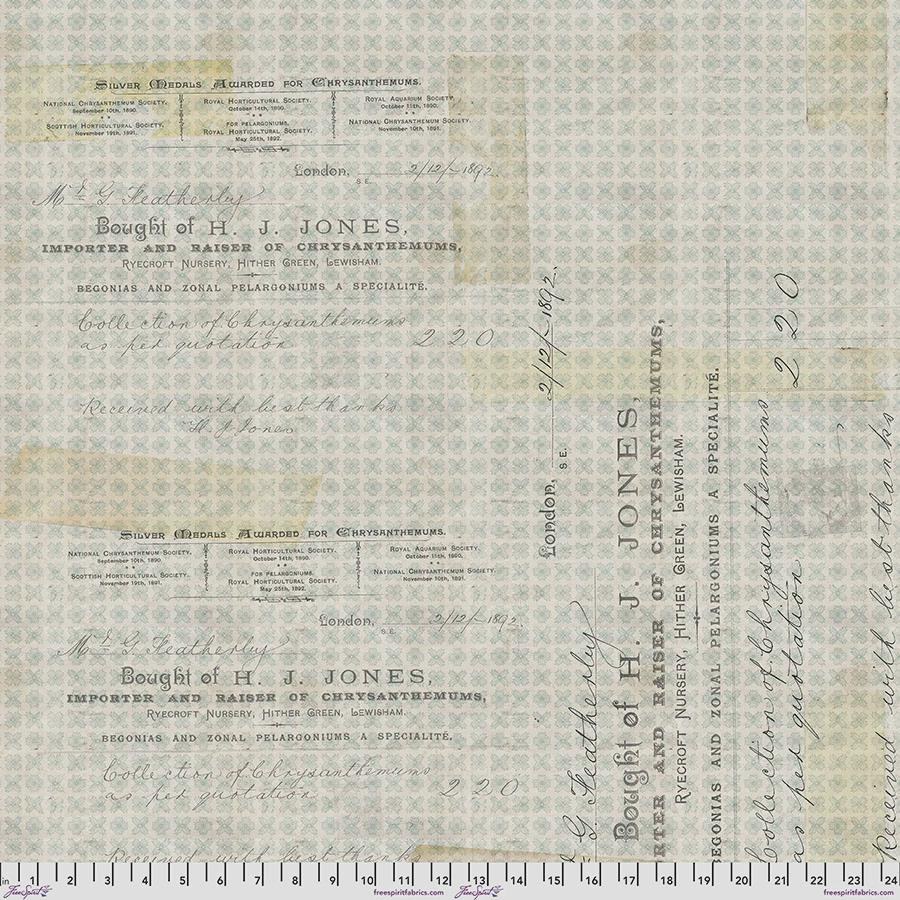 Silver Medals Awarded for Chrysanthemums.
National Chrysanthemum Society, September 10th, 1890.
Scottish Horticultural Society, November 19th, 1891.
Royal Horticultural Society. October 14th, 1890.
FOR PELARGONIUMS.
Royal Horticultural Society. May 25th, 1892.
Royal Aquarium Society, October 11th, 1890.
National Chrysanthemum Society, November 10th, 1891.
London, S.E. 2/12/-1892.
Mr G. Featherby
Bought of H. J. JONES,
IMPORTER AND RAISER OF CHRYSANTHEMUMS,
Ryecroft Nursery, Hither Green, Lewisham.
BEGONIAS AND ZONAL PELARGONIUMS A SPECIALITÉ.
Collection of Chrysanthemums
as per quotation 2 2 0
Received with best thanks
H. J. Jones
Silver Medals Awarded for Chrysanthemums.
National Chrysanthemum Society, September 10th, 1890.
Scottish Horticultural Society, November 19th, 1891.
Royal Horticultural Society. October 14th, 1890.
FOR PELARGONIUMS.
Royal Horticultural Society. May 25th, 1892.
Royal Aquarium Society, October 11th, 1890.
National Chrysanthemum Society, November 10th, 1891.
London, S.E. 2/12/-1892.
Mr G. Featherby
Bought of H. J. JONES,
IMPORTER AND RAISER OF CHRYSANTHEMUMS,
Ryecroft Nursery, Hither Green, Lewisham.
BEGONIAS AND ZONAL PELARGONIUMS A SPECIALITÉ.
Collection of Chrysanthemums
as per quotation 2 2 0
Received with best thanks
London, S.E. 2/12/-1892.
G. Featherby
Bought of H. J. JONES,
RTER AND RAISER OF CHRYSANTHEMUMS,
Ryecroft Nursery, Hither Green, Lewisham.
BEGONIAS AND ZONAL PELARGONIUMS A SPECIALITÉ.
Collection of Chrysanthemums
as per quotation 2 2 0
Received with best thanks
in 1 2 3 4 5 6 7 8 9 10 11 12 13 14 15 16 17 18 19 20 21 22 23 24
FreeSpirit freespiritfabrics.com FreeSpirit freespiritfabrics.com